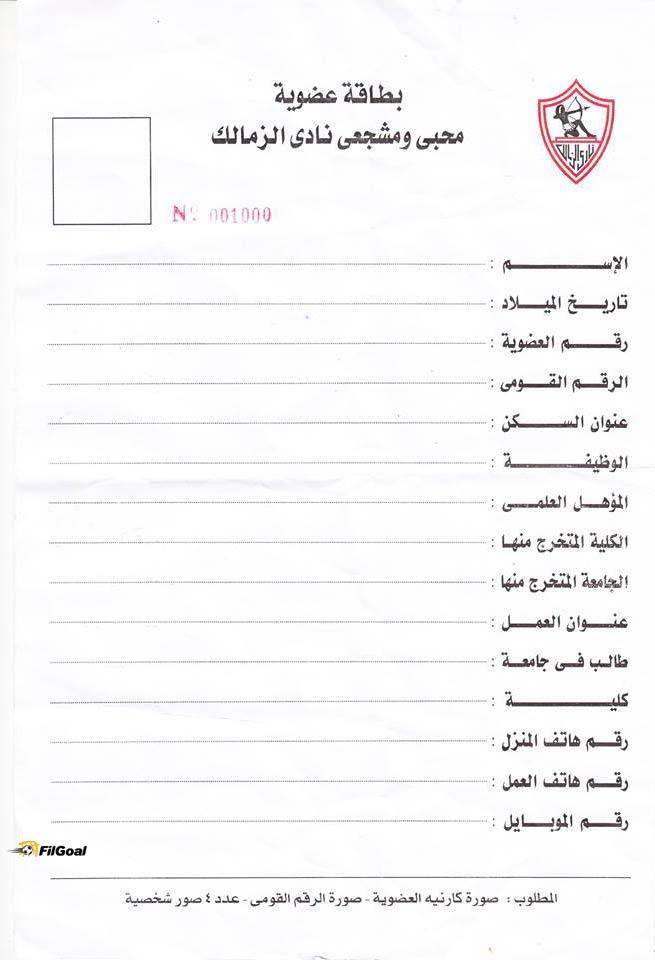 بطاقة عضوية
محبى ومشجعى نادى الزمالك
نادى الزمالك
Nº 001000
الإسم :
تاريخ الميلاد :
رقم العضوية :
الرقم القومى :
عنوان السكن :
الوظيفة :
المؤهل العلمى :
الكلية المتخرج منها :
الجامعة المتخرج منها :
عنوان العمل :
طالب فى جامعة :
كلية :
رقم هاتف المنزل :
رقم هاتف العمل :
رقم الموبايل :
FilGoal
المطلوب : صورة كارنيه العضوية - صورة الرقم القومى - عدد ٤ صور شخصية